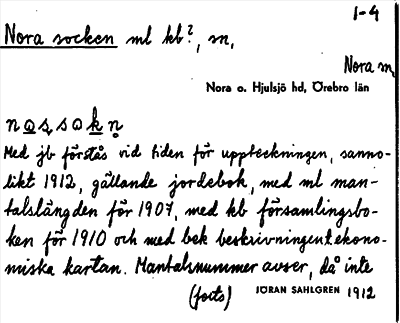 1-4
Nora socken ml kb?, sn,
Nora sn,
Nora o. Hjulsjö hd, Örebro län
Med jb förstås vid tiden för uppteckningen, sanno-
likt 1912, gällande jordebok, med ml man-
talslängden för 1907, med kb församlingsbo-
ken för 1910 och med bek beskrivningen t. ekono-
miska kartan. Mantalsnummer avser, då inte
(forts) JÖRAN SAHLGREN 1912